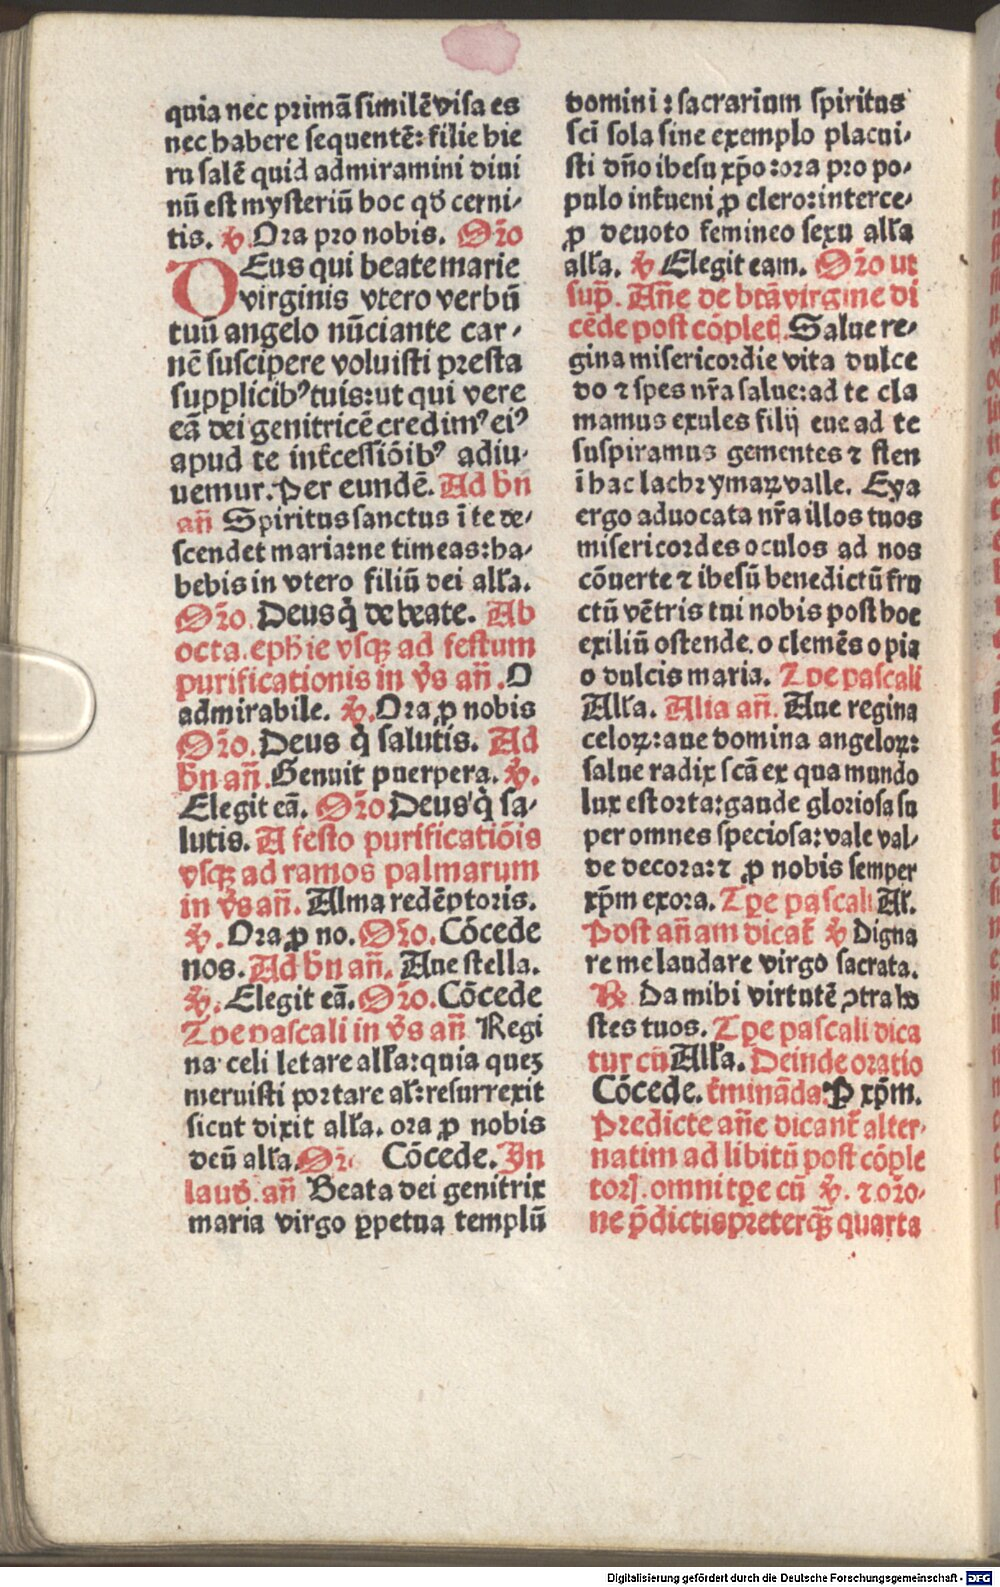 quia nec primā similē visa es
nec habere sequentē: filie hie
rusalē quid admiramini divi
nū est mysteriū hoc qđ cerni⸗
tis. ℣ Ora pro nobis. Oro
DEus qui beate marie
virginis vtero verbū
tuū angelo nūciante car⸗
nē suscipere voluisti presta
supplicibꝰ tuis: ut qui vere
eā dei genitricē credimꝰ eiꝰ
apud te int̄cessiōibꝰ adiu⸗
uemur. Per eundē. Ad bn̄
an̄ Spiritus sanctus ī te de⸗
scendet maria: ne timeas: ha⸗
bebis in vtero filiū dei alľa.
Oro. Deus q̇ de beate. Ab
octa. epħie vsqꝫ ad festum
purificationis in vs̄ an̄. O
admirabile. ℣. Ora ꝓ nobis
Oro. Deus q̇ salutis. Ad
bn̄ an̄. Genuit puerpera. ℣.
Elegit eā. Oro Deus q̇ sa⸗
lutis. A festo purificatiōis
vsqꝫ ad ramos palmarum
in vs̄ an̄. Alma redēptoris.
℣. Ora ꝓ no. Oro. Cōcede
nos. Ad bn̄ an̄. Aue stella.
℣. Elegit eā. Oro. Cōcede
Tꝑe pascali in vs̄ an̄ Regi
na celi letare alľa: quia queꝫ
meruisti portare al: resurrexit
sicut dixit alľa. ora ꝓ nobis
deū alľa. Or Cōcede. In
laud. an̄ Beata dei genitrix
maria virgo ꝑpetua templū
domini: sacrarium spiritus
sci̅ sola sine exemplo placui⸗
sti dn̄o ihesu xp̄o: ora pro po⸗
pulo int̄ueni ꝓ clero: interce⸗
ꝓ deuoto femineo sexu alľa
alľa. ℣ Elegit eam. Oro ut
sup̄. An̄e de btā virgine di
cēde post cōplet̄. Salue re⸗
gina misericordie vita dulce
do ⁊ spes nr̄a salue: ad te cla
mamus exules filij eue ad te
suspiramus gementes ⁊ flen
ī hac lachrymaꝝ valle. Eya
ergo aduocata nr̄a illos tuos
misericordes oculos ad nos
cōuerte ⁊ ihesū benedictū fru
ctū vētris tui nobis post hoc
exiliū ostende. o clemēs o pia
o dulcis maria. Tꝑe pascali
Alľa. Alia an̄. Aue regina
celoꝝ: aue domina angeloꝝ:
salue radix scā ex qua mundo
lux est orta: gaude gloriosa su
per omnes speciosa: vale val⸗
de decora: ⁊ ꝓ nobis semper
xp̄m exora. Tꝑe pascali Al.
Post an̄am dicat̄ ℣ Digna
re me laudare virgo sacrata.
℟. Da mihi virtutē ꝯtra ho
stes tuos. Tꝑe pascali dica
tur cū Alľa. Deinde oratio
Cōcede. t̄mināda: P xp̄m.
Predicte an̄e dicant̄ alter⸗
natim ad libitū post cōple
torȷ. omni tꝑe cū ℣. ⁊ oro⸗
ne p̄dictis preterqꝫ quarta
Digitalisierung gefördert durch die Deutsche Forschungsgemeinschaft - DFG